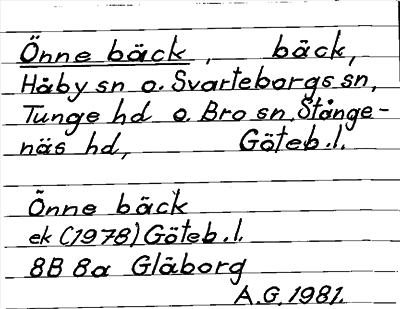 Önne bäck, bäck,
Håby sn o. Svarteborgs sn,
Tunge hd o. Bro sn, Stånge-
näs hd, Göteb. l.
Önne bäck
ek (1978) Göteb. l.
8B 8a Gläborg
A.G. 1981.